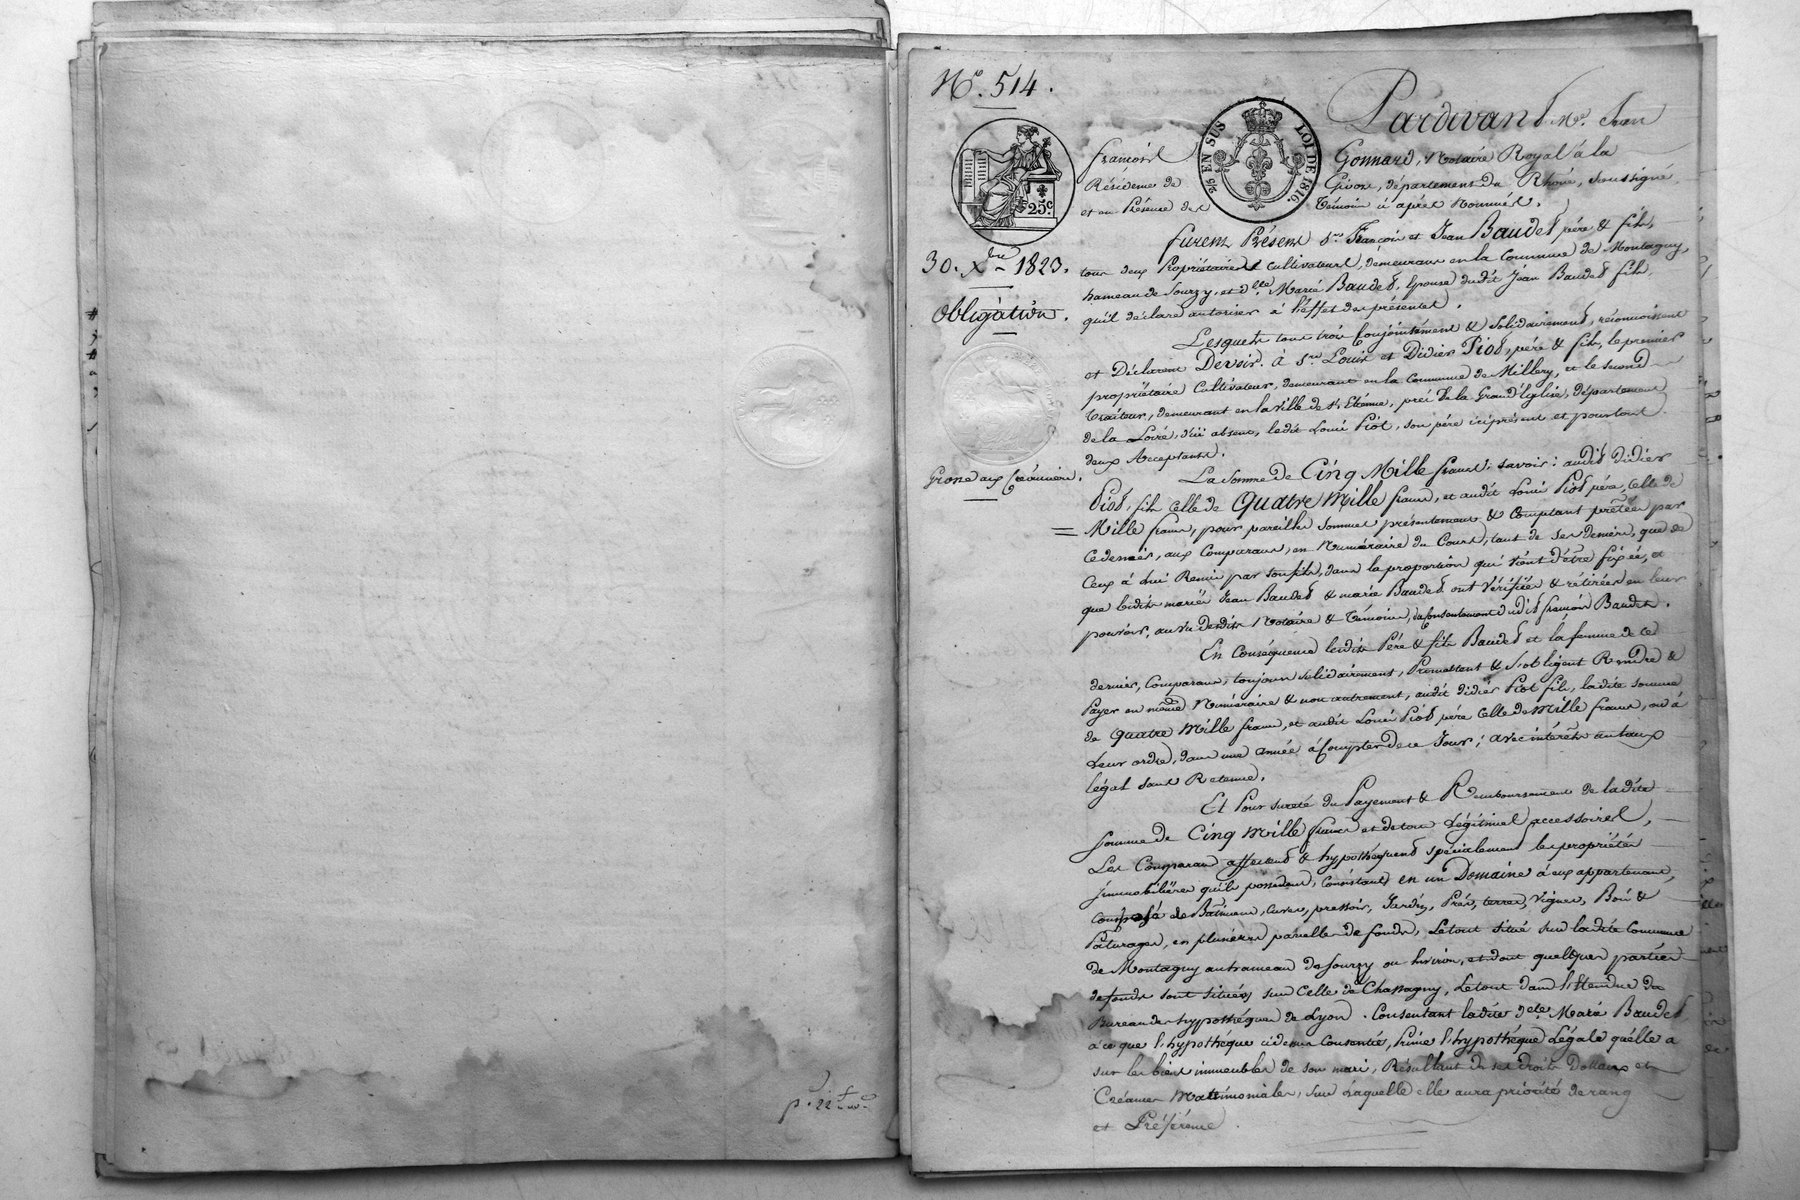 N.º 514.
Pardevant Me. Jean
françois Gonnard, Notaire Royal à la
Résidence de Givors, département du Rhône, soussigné,
et en Présence des Témoins ci après Nommés.
2/5 EN SUS
LOI DE 1816.
25c.
30. Xbre 1823.
Obligation.
Grosse aux Créanciers.
furent Présens Srs. François et Jean Baudet père & fils,
tous deux Propriétaires Cultivateurs, demeurans en la Commune de Montagny,
hameau de Sourzy, et Dlle. Marie Baudet, Epouse dudit Jean Baudet fils,
qu'il déclare autoriser à l'effet des présentes.
Lesquels tous trois Conjointement & Solidairement, reconnoissent
et Déclarent Devoir à Srs Louis et Didier Piot, père & fils, le premier
propriétaire Cultivateur, demeurant en la Commune de Millery, et le second
traiteur, demeurant en la Ville de St. Etienne, près de la Grand'Eglise, département
de la Loire, d'ici absent, ledit Louis Piot, son père ici présent et pour tout
deux Acceptant.
La somme de Cinq Mille francs; savoir: audit Didier
Piot, fils Celle de Quatre Mille francs, et audit Louis Piot père, Celle de
Mille francs, pour pareilles sommes présentement & Comptant prêtées par
Ce dernier, aux Comparans, en Numéraire du Cours, tant de ses deniers, que de
Ceux à lui Remis par son fils, dans la proportion qui vient d'être fixée, et
que lesdits mariés Jean Baudet & marie Baudet ont Vérifiées & rétirées en leur
pouvoir, au Vu desdits Notaire & Témoins, du Consentement dudit françois Baudet.
En Conséquence lesdits Père & fils Baudet et la femme de ce
dernier, Comparans, toujours solidairement, Promettent & S'obligent Rendre &
Payer en même Numéraire & non autrement, audit didier Piot fils, ladite somme
de Quatre Mille francs, et audit Louis Piot père Celle de Mille francs, ou à
Leur ordre, dans une année à Compter de ce Jour; avec intérêts au taux
légal sans Retenue.
Et Pour sureté du Payement & Remboursement de ladite
somme de Cinq Mille francs et de tous Légitimes accessoires,
Les Comparans affectent & hypothèquent spécialement les propriétés
Jmmobilières qu'ils possèdent, Consistant en un Domaine à eux appartenant,
Composé de Bâtimens, Cuves, pressoir, Jardin, Prés, terres, Vignes, Bois &
Pâturages, en plusieurs parcelles de fonds, Le tout situé sur ladite Commune
de Montagny au hameau de Sourzy ou Environ, et dont quelques parties
de fonds sont situées sur Celle de Chassagny, Le tout dans l'Etendue du
Bureau des hypothèques de Lyon. Consentant ladite Dlle. Marie Baudet
à ce que l'hypothèque ci dessus Consentie, Prime l'hypothèque Légale qu'elle a
sur les biens immeubles de son mari, Résultant de ses droits Dotaux et
Créances Matrimoniales, sur Laquelle elle aura priorité de rang
et Préférence.